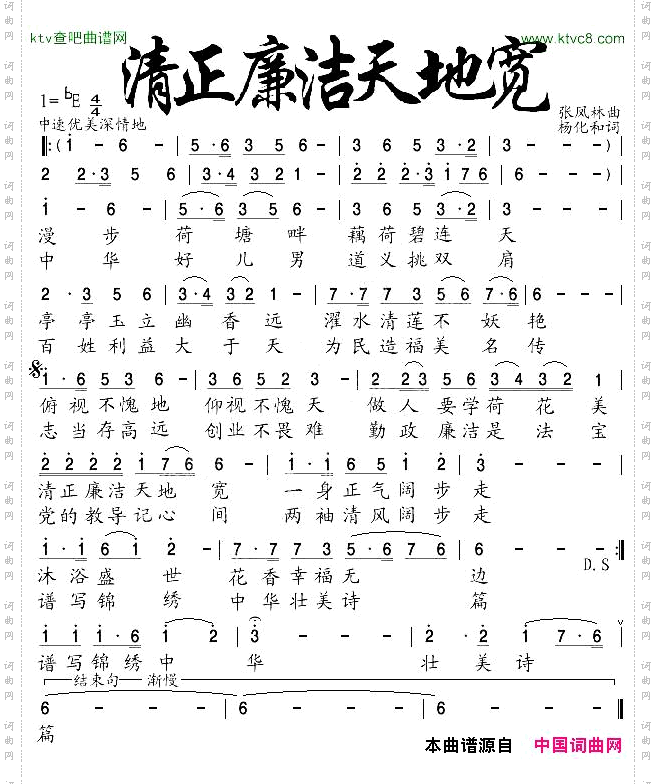 ktv查吧曲谱网 www.ktvc8.com
清正廉洁天地宽
1= ♭E 4/4
张风林曲
中速优美深情地 杨化和词
‖:( i - 6 - | 5 · 6 3 5 - | 3 6 5 3 · 2 | 3 - - - ) |
2 2 · 3 5 6 | 3 · 4 3 2 1 - | 2 2 2 · 3 1 7 6 | 6 - - - ) |
i - 6 - | 5 · 6 3 5 - | 3 6 5 3 · 2 | 3 - - - |
漫 步 荷 塘 畔 藕 荷 碧 连 天
中 华 好 儿 男 道 义 挑 双 肩
2 · 3 5 6 | 3 · 4 3 2 1 - | 7 · 7 7 3 5 7 · 6 | 6 - - - |
亭 亭 玉 立 幽 香 远 濯 水 清 莲 不 妖 艳
百 姓 利 益 大 于 天 为 民 造 福 美 名 传
1 · 6 5 3 2 - | 3 6 5 2 3 - | 2 2 3 5 6 3 4 3 2 1 |
俯 视 不 愧 地 仰 视 不 愧 天 做 人 要 学 荷 花 美
志 当 存 高 远 创 业 不 畏 难 勤 政 廉 洁 是 法 宝
2 2 2 2 1 7 6 6 - | i · i 6 5 1 2 | 3 - - - |
清 正 廉 洁 天 地 宽 一 身 正 气 阔 步 走
党 的 教 导 记 心 间 两 袖 清 风 阔 步 走
1 · 1 6 1 2 - | 7 · 7 7 3 5 · 6 7 6 | 6 - - - :‖
D.S
沐 浴 盛 世 花 香 幸 福 无 边
谱 写 锦 绣 中 华 壮 美 诗 篇
i i i · 6 1 2 | 3 - - - | 2 · 2 i 7 · 6 |
谱 写 锦 绣 中 华 壮 美 诗
结束句 渐慢
6 - - - | 6 - - - | 6 - - - ‖
篇
本曲谱源自 中国词曲网
词曲网